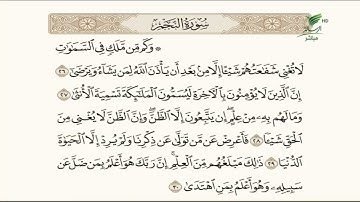 سُورَةُ النَّجْمِ
HD
مباشر
۞ وَكَم مِّن مَّلَكٍ فِي السَّمَٰوَٰتِ
لَا تُغْنِي شَفَٰعَتُهُمْ شَيْـًٔا إِلَّا مِنۢ بَعْدِ أَن يَأْذَنَ اللَّهُ لِمَن يَشَآءُ وَيَرْضَىٰٓ ٢٦
إِنَّ الَّذِينَ لَا يُؤْمِنُونَ بِالْـَٔاخِرَةِ لَيُسَمُّونَ الْمَلَٰٓئِكَةَ تَسْمِيَةَ الْأُنثَىٰ ٢٧
وَمَا لَهُم بِهِۦ مِنْ عِلْمٍ ۖ إِن يَتَّبِعُونَ إِلَّا الظَّنَّ ۖ وَإِنَّ الظَّنَّ لَا يُغْنِي مِنَ
الْحَقِّ شَيْـًٔا ٢٨ فَأَعْرِضْ عَن مَّن تَوَلَّىٰ عَن ذِكْرِنَا وَلَمْ يُرِدْ إِلَّا الْحَيَوٰةَ
الدُّنْيَا ٢٩ ذَٰلِكَ مَبْلَغُهُم مِّنَ الْعِلْمِ ۚ إِنَّ رَبَّكَ هُوَ أَعْلَمُ بِمَن ضَلَّ عَن
سَبِيلِهِۦ وَهُوَ أَعْلَمُ بِمَنِ اهْتَدَىٰ ٣٠